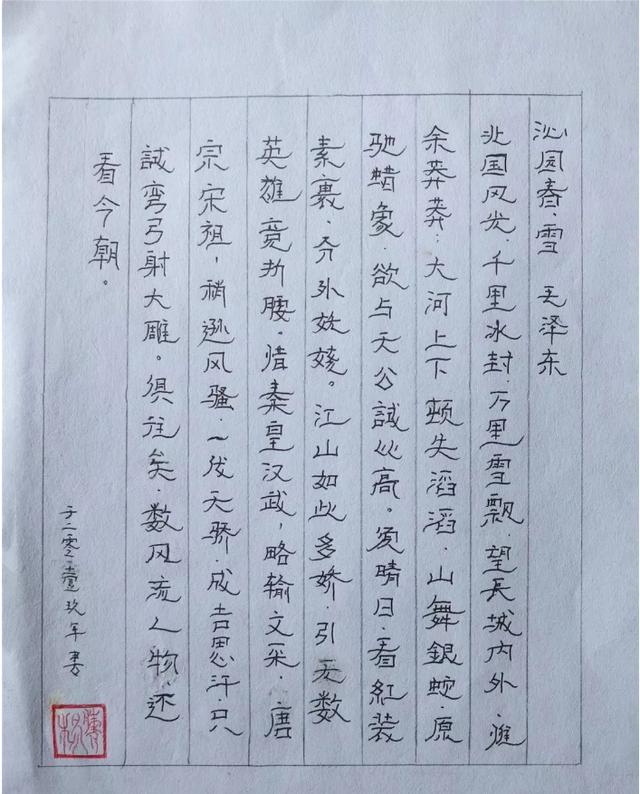 沁园春、雪 毛泽东
北国风光、千里冰封、万里雪飘、望長城内外、惟
余莽莽；大河上下 顿失滔滔、山舞銀蛇、原
驰蜡象、欲与天公誠比高。须晴日、看紅装
素裹、分外妖娆。江山如此多娇、引无数
英雄竞折腰。惜秦皇汉武，略输文采、唐
宗宋祖，稍逊风骚、一代天骄、成吉思汗、只
誠弯弓射大雕。俱往矣、数风流人物、还
看今朝。
于二零壹玖年書